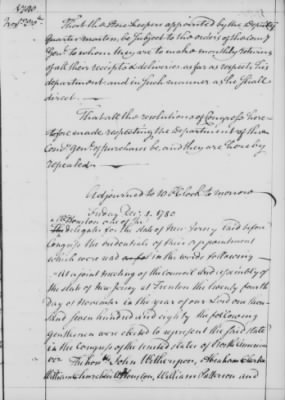 1780
Novr. 30th.
That the Store keepers appointed by the Deputy
Quarter master, be subject to the orders of the Comy
Genl. to whom they are to make monthly returns
of all their receipts & deliveries as far as respects his
department and in such manner as he shall
direct.
That all the resolutions of Congress here-
tofore made respecting the Department of the
Comy. Genl. of purchases be, and they are hereby
repealed
Adjourned to 10 o'Clock to morrow
Friday Decr. 1. 1780
Mr. Houston one of the
The delegates for the state of New Jersey laid before
Congress the credentials of their appointment
which were read in the words following
At a joint meeting of the Council and assembly of
the state of New Jersey at Trenton the twenty fourth
day of November in the year of our Lord one thou-
sand seven hundred and eighty the following
gentlemen were elected to represent the said state
in the Congress of the united states of North America
The honble. John Witherspoon, Abraham Clark
William Churchill Houston, William Patterson and